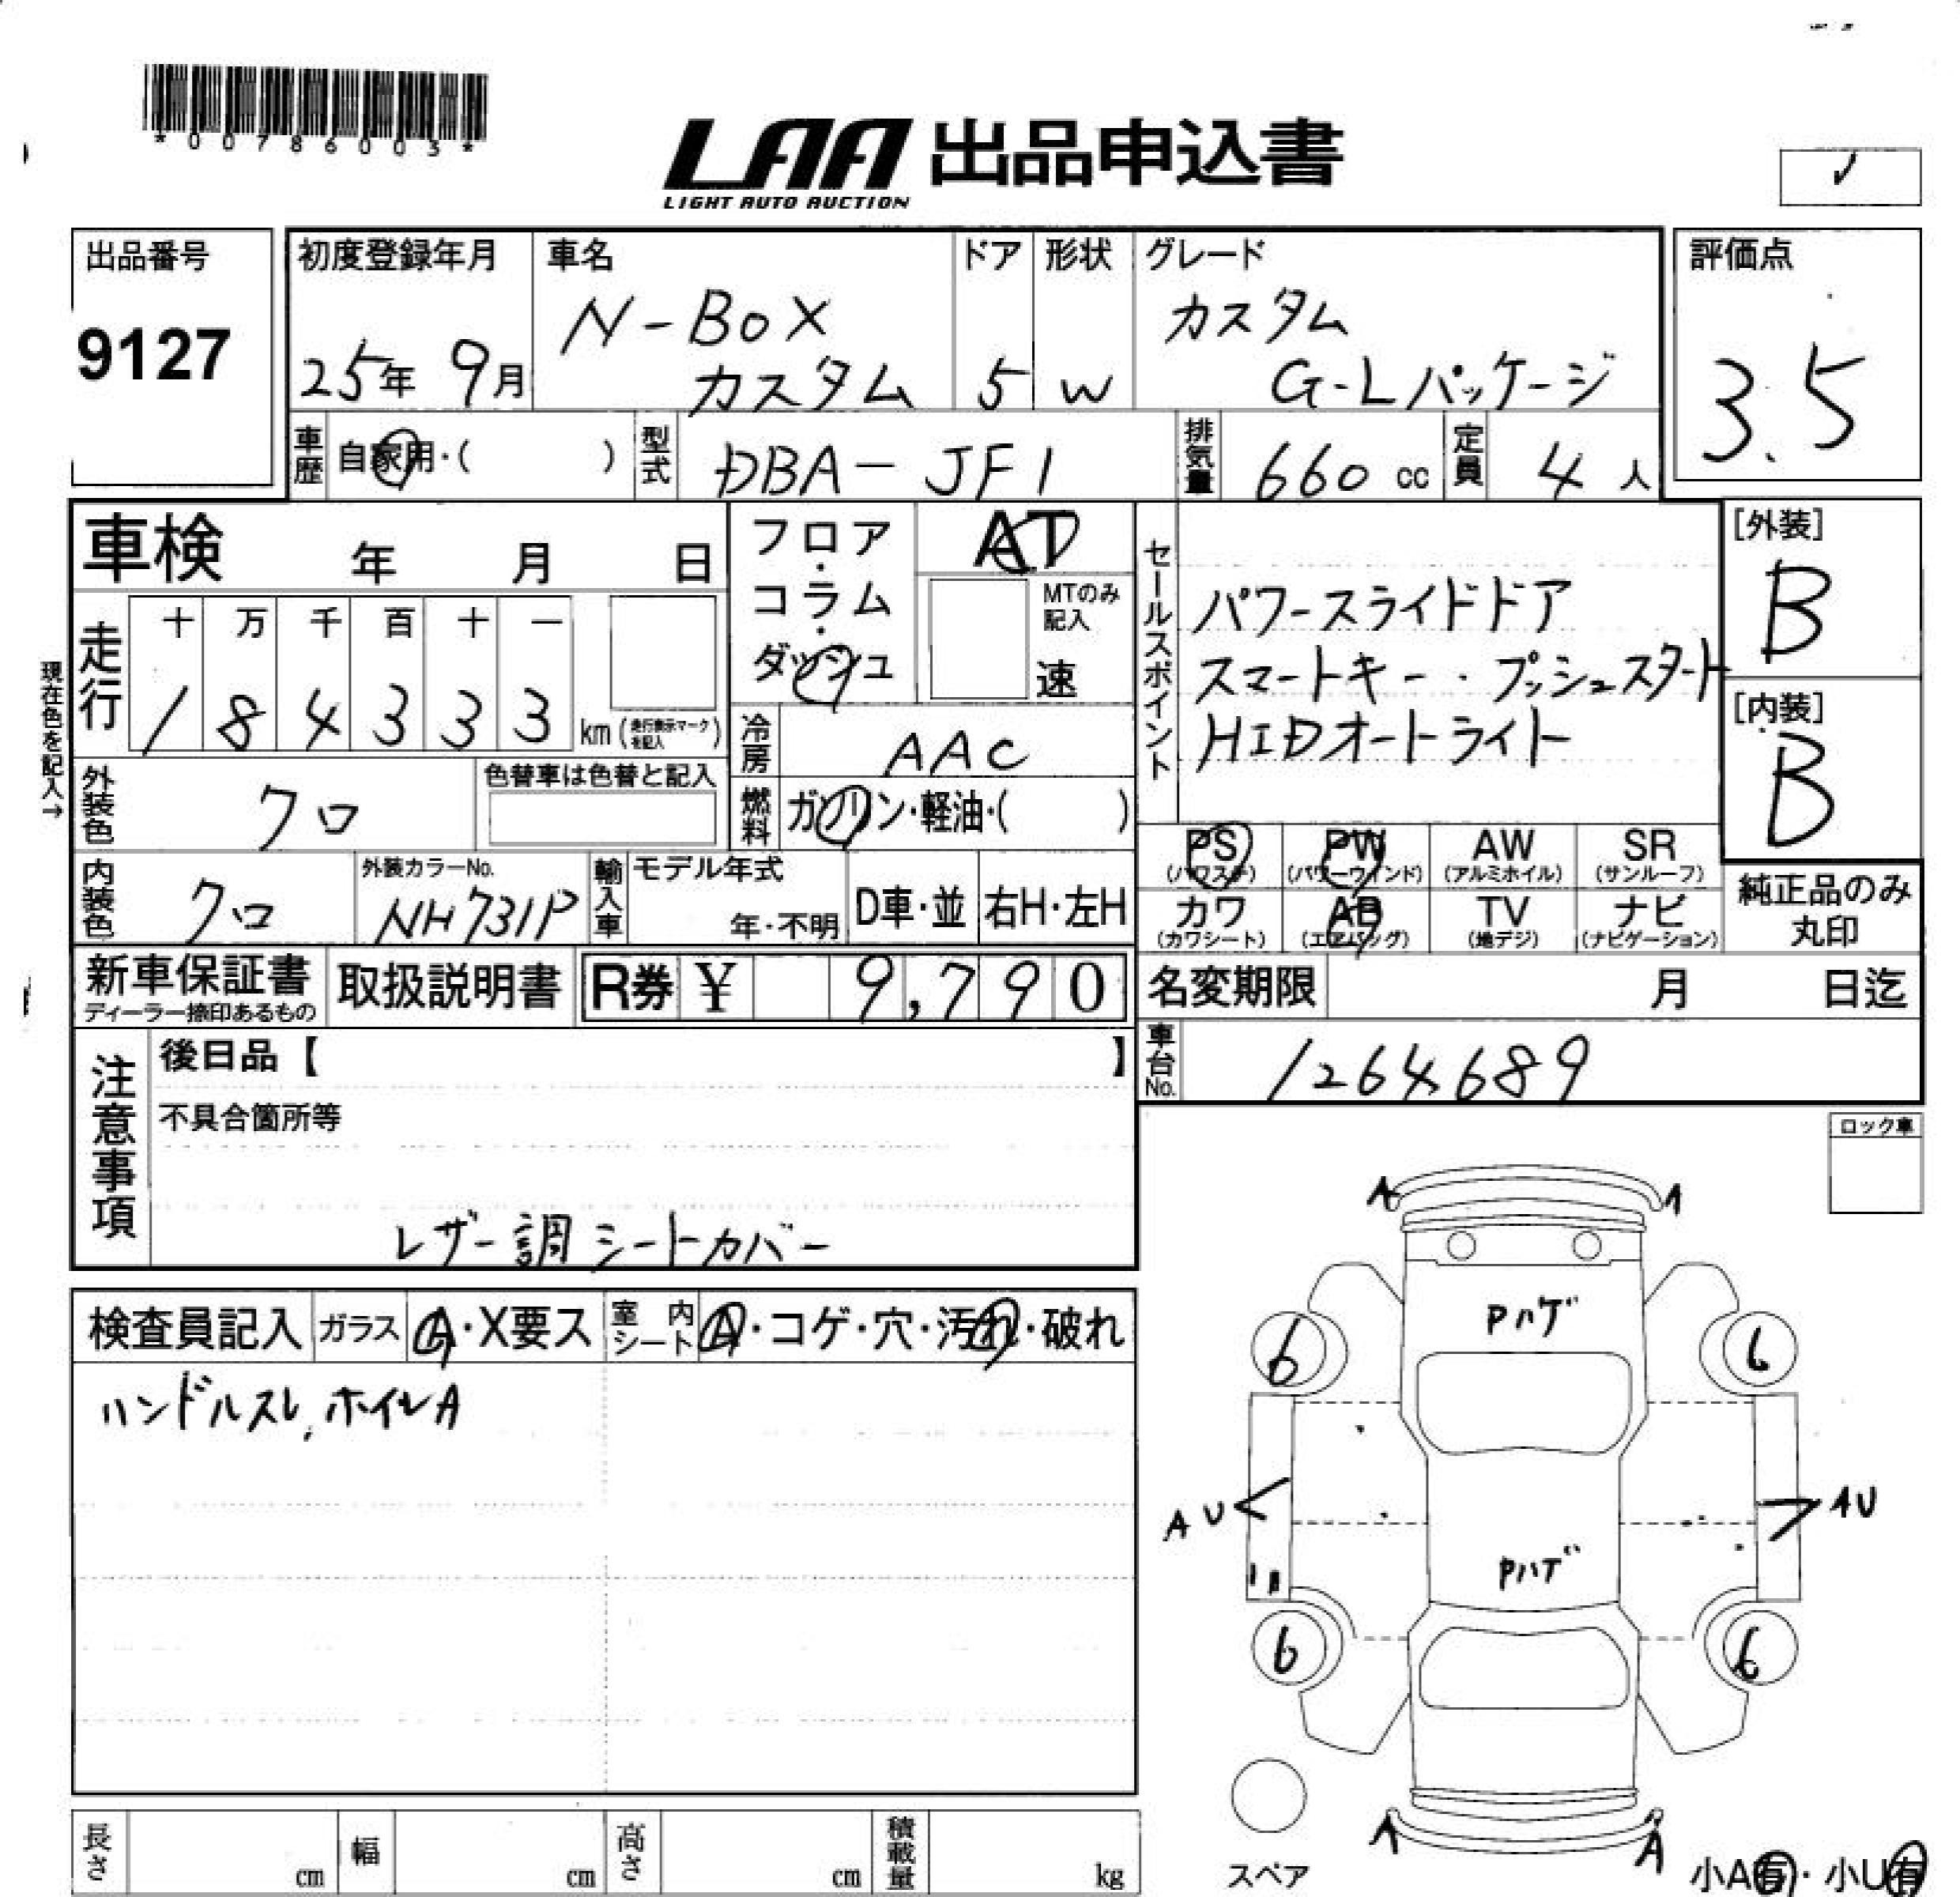 *00786003*
LAA 出品申込書
LIGHT AUTO AUCTION
出品番号
9127
初度登録年月
25年 9月
車名
N-BOX
カスタム
ドア
5
形状
W
グレード
カスタム
G-Lパッケージ
評価点
3.5
車歴 自家用・( )
型式 DBA-JF1
排気量 660 cc
定員 4 人
車検 年 月 日
現在色を記入→
走行
十 万 千 百 十 一
1 8 4 3 3 3
km (走行表示マークを記入)
フロア・コラム・ダッシュ
AT
MTのみ記入
速
冷房 AAC
燃料 ガソリン・軽油・( )
セールスポイント
パワースライドドア
スマートキー・プッシュスタート
HIDオートライト
[外装]
B
[内装]
B
外装色 クロ
色替車は色替と記入
内装色 クロ
外装カラーNo.
NH731P
輸入車
モデル年式
年・不明
D車・並
右H・左H
PS (パワステ)
PW (パワーウインド)
AW (アルミホイル)
SR (サンルーフ)
カワ (カワシート)
AB (エアバッグ)
TV (地デジ)
ナビ (ナビゲーション)
純正品のみ
丸印
新車保証書
ディーラー捺印あるもの
取扱説明書
R券 ¥ 9,790
名変期限 月 日迄
車台No. 1264689
注意事項
後日品【 】
不具合箇所等
レザー調シートカバー
ロック車
検査員記入
ガラス A・X要ス
室内シート A・コゲ・穴・汚れ・破れ
ハンドルスレ, ホイルA
A A
Pハゲ
6 6
AU AU
Pハゲ
6 6
A A
スペア
小A有・小U有
長さ cm
幅 cm
高さ cm
積載量 kg